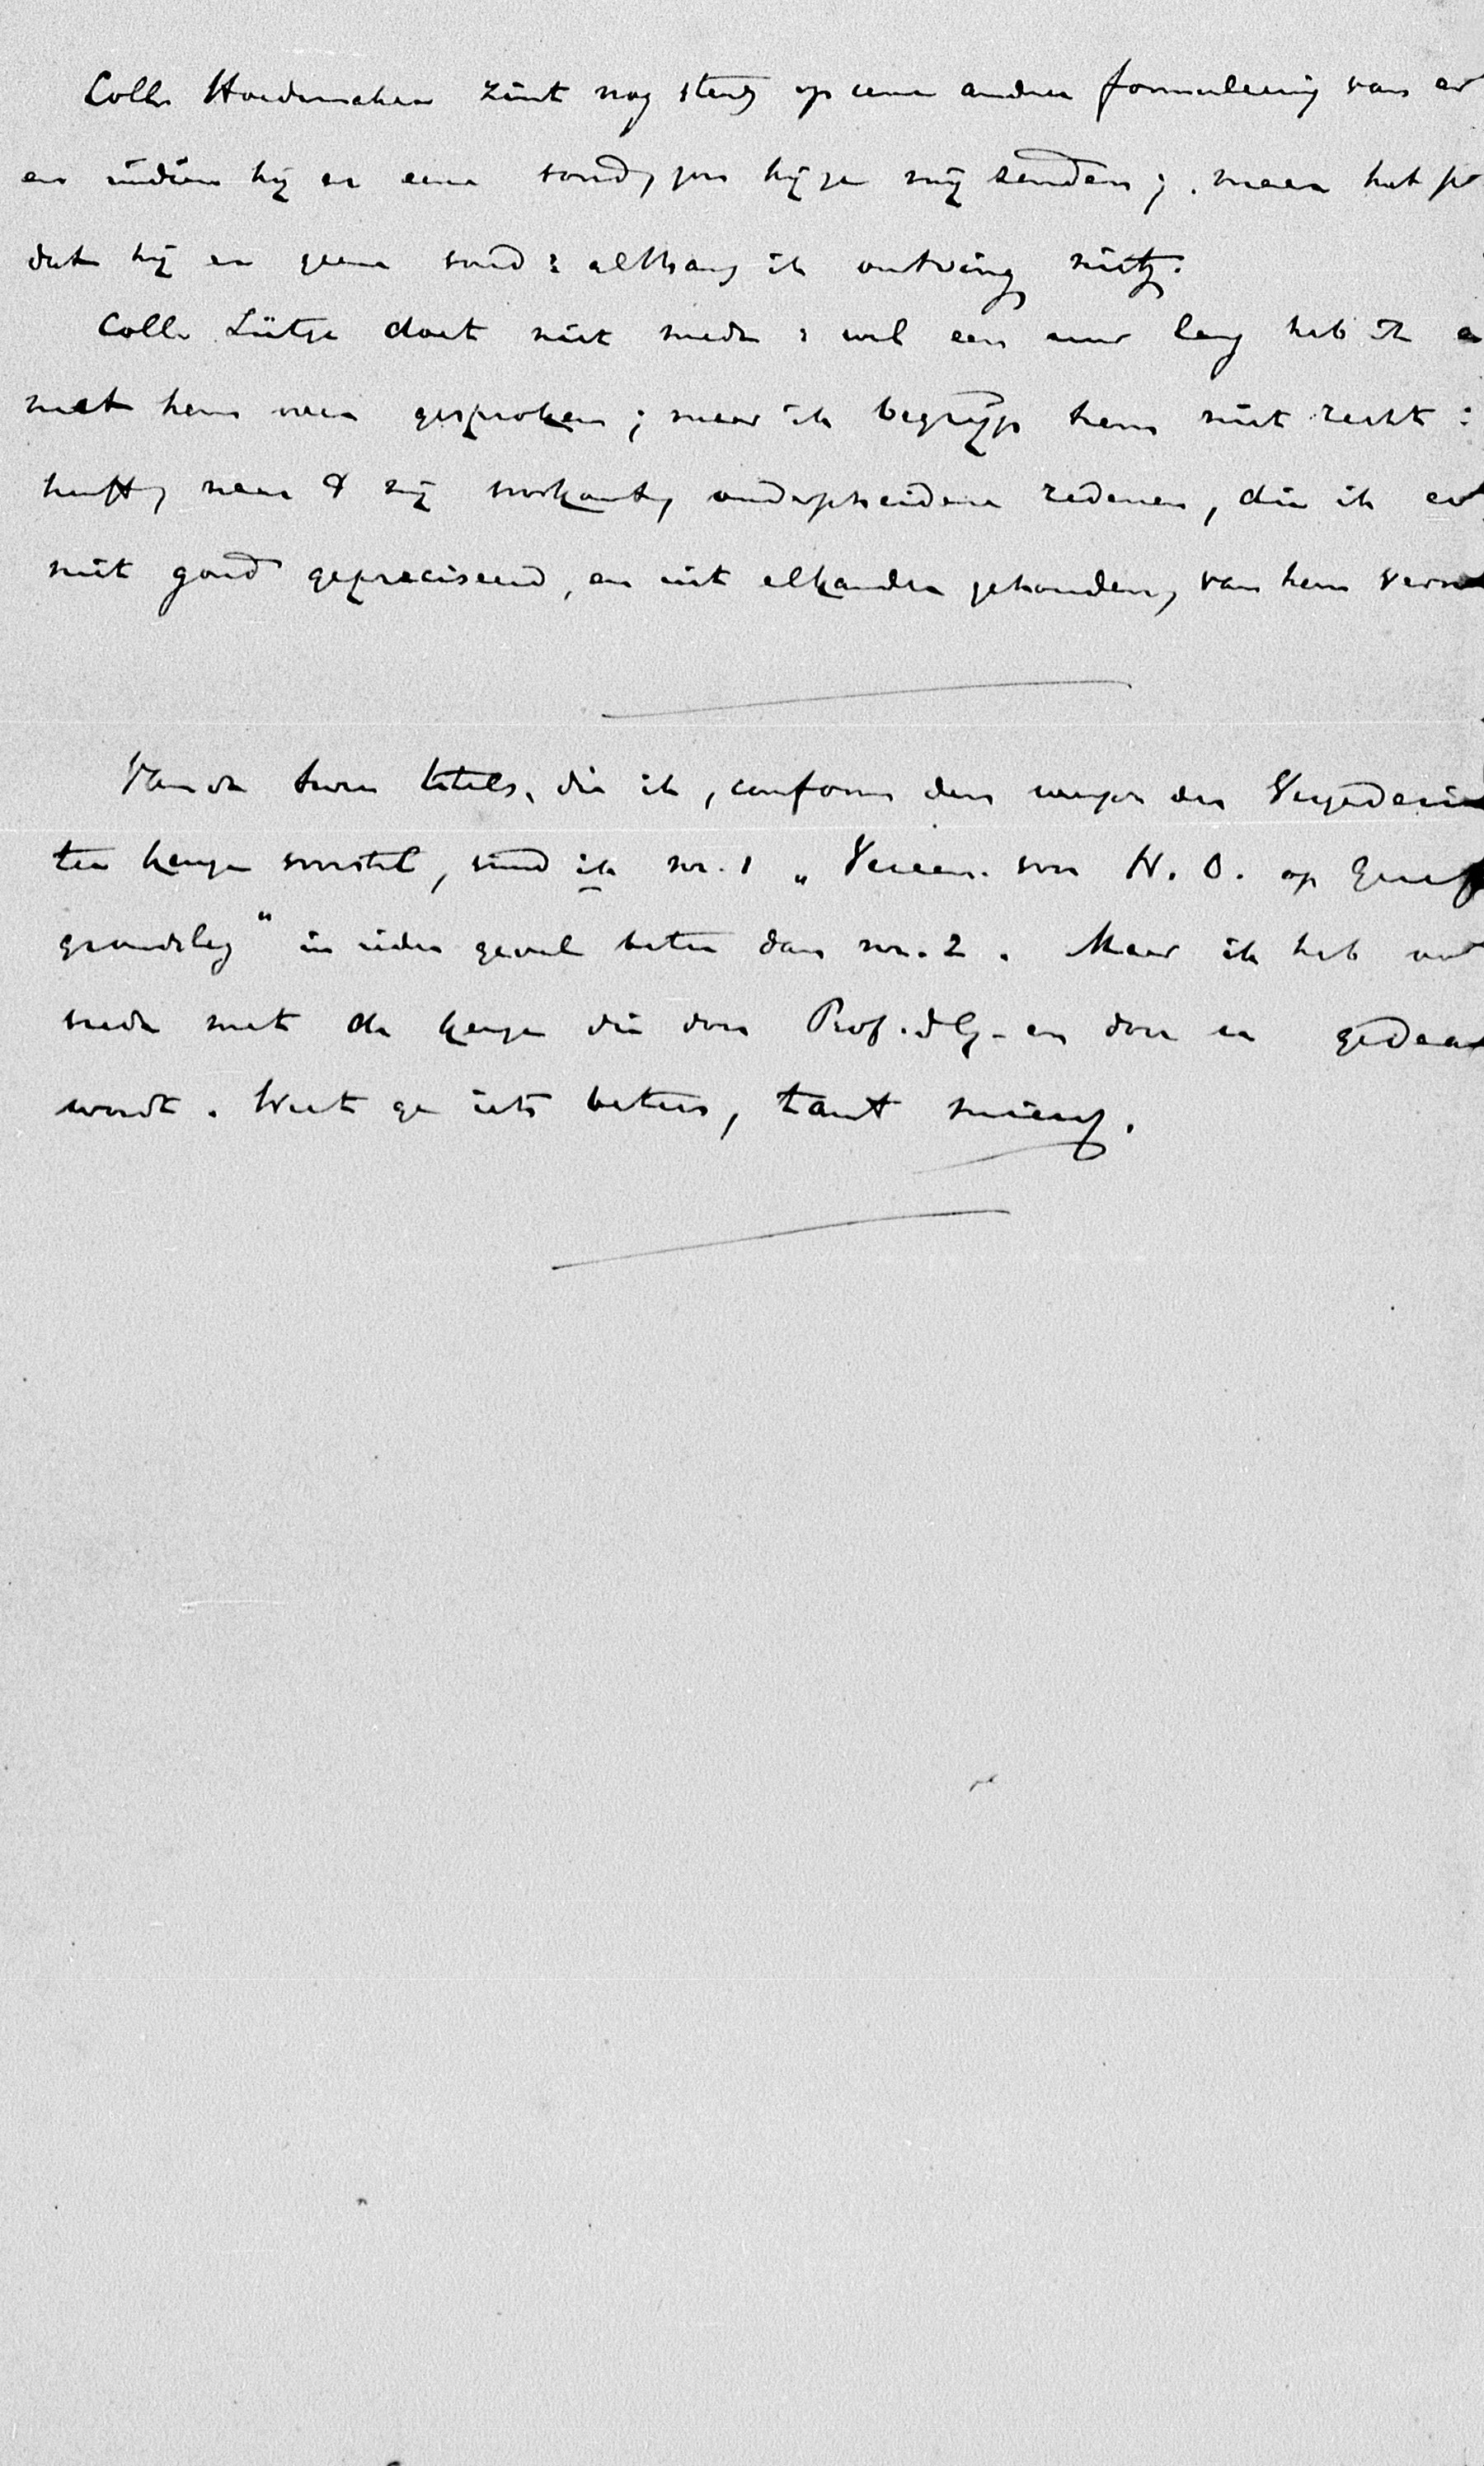 Colla Hoedemaker zint nog steeds op eene andere formuleering van
en indien hij er eene vond, zou hij ze mij zenden; maar het
dat hij er geene vond: althans ik ontving niets.
Colla Lütge doet niet mede: wel een uur lang heb ik
met hem over gesproken; maar ik begrijp hem niet recht:
heeft, naar 't mij voorkomt, onderscheidene redenen, die ik
niet goed gepreciseerd, en uit elkander gehouden, van hem
Van de twee titels, die ik, conform den wensch der Vergaderin
ter keuze voorstel, vind ik no. 1 „Vereen. voor H. O. op Geref
grondslag" in ieder geval beter dan no. 2. Maar ik heb
vrede met de keuze die door Prof. d G. en door u gedaan
wordt. Weet ge iets beters, tant mieux.